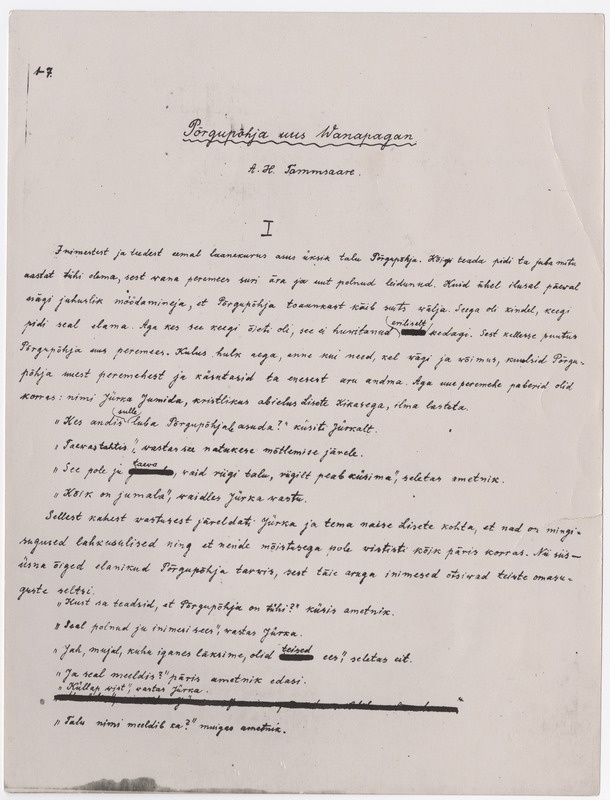 1-7.
Põrgupõhja uus Wanapagan
A. H. Tammsaare.
I
Inimestest ja teedest eemal laanekurus asus üksik talu Põrgupõhja. Kõigi teada pidi ta juba mitu
aastat tühi olema, sest wana peremees suri ära ja uut polnud leidunud. Kuid ühel ilusal päewal
nägi juhuslik möödamineja, et Põrgupõhja toaaunkast käib suits wälja. Seega oli kindel, keegi
pidi seal elama. Aga kes see keegi õieti oli, see ei huwitanud eriliselt kedagi. Sest kellesse puutus
Põrgupõhja uus peremees. Kulus hulk aega, enne kui need, kel wägi ja wõimus, kuulsid Põrgu-
põhja uuest peremehest ja käsutasid ta enesest aru andma. Aga uue peremehe paberid olid
korras: nimi Jürka Jumida, kristlikus abielus Lisete Kikasega, ilma lasteta.
„Kes andis sulle luba Põrgupõhjal asuda?" küsiti Jürkalt.
„Taewastahtis", wastas see natukese mõtlemise järele.
„See pole ju taewa, vaid riigi talu, riigilt peab küsima", seletas ametnik.
„Kõik on jumala", waidles Jürka wastu.
Sellest kahest wastusest järeldati Jürka ja tema naise Lisete kohta, et nad on mingi-
sugused lahkusulised ning et nende mõistusega pole wististi kõik päris korras. Nii siis —
üsna õiged elanikud Põrgupõhja tarwis, sest täie aruga inimesed otsiwad teiste omasu-
guste seltsi.
„Kust sa teadsid, et Põrgupõhja on tühi?" küsis ametnik.
„Seal polnud ju inimesi sees", wastas Jürka.
„Jah, mujal, kuhu iganes läksime, olid teised ees", seletas eit.
„Ja seal meeldis?" päris ametnik edasi.
„Küllap wist", wastas Jürka.
„Talu nimi meeldib ka?" muigas ametnik.